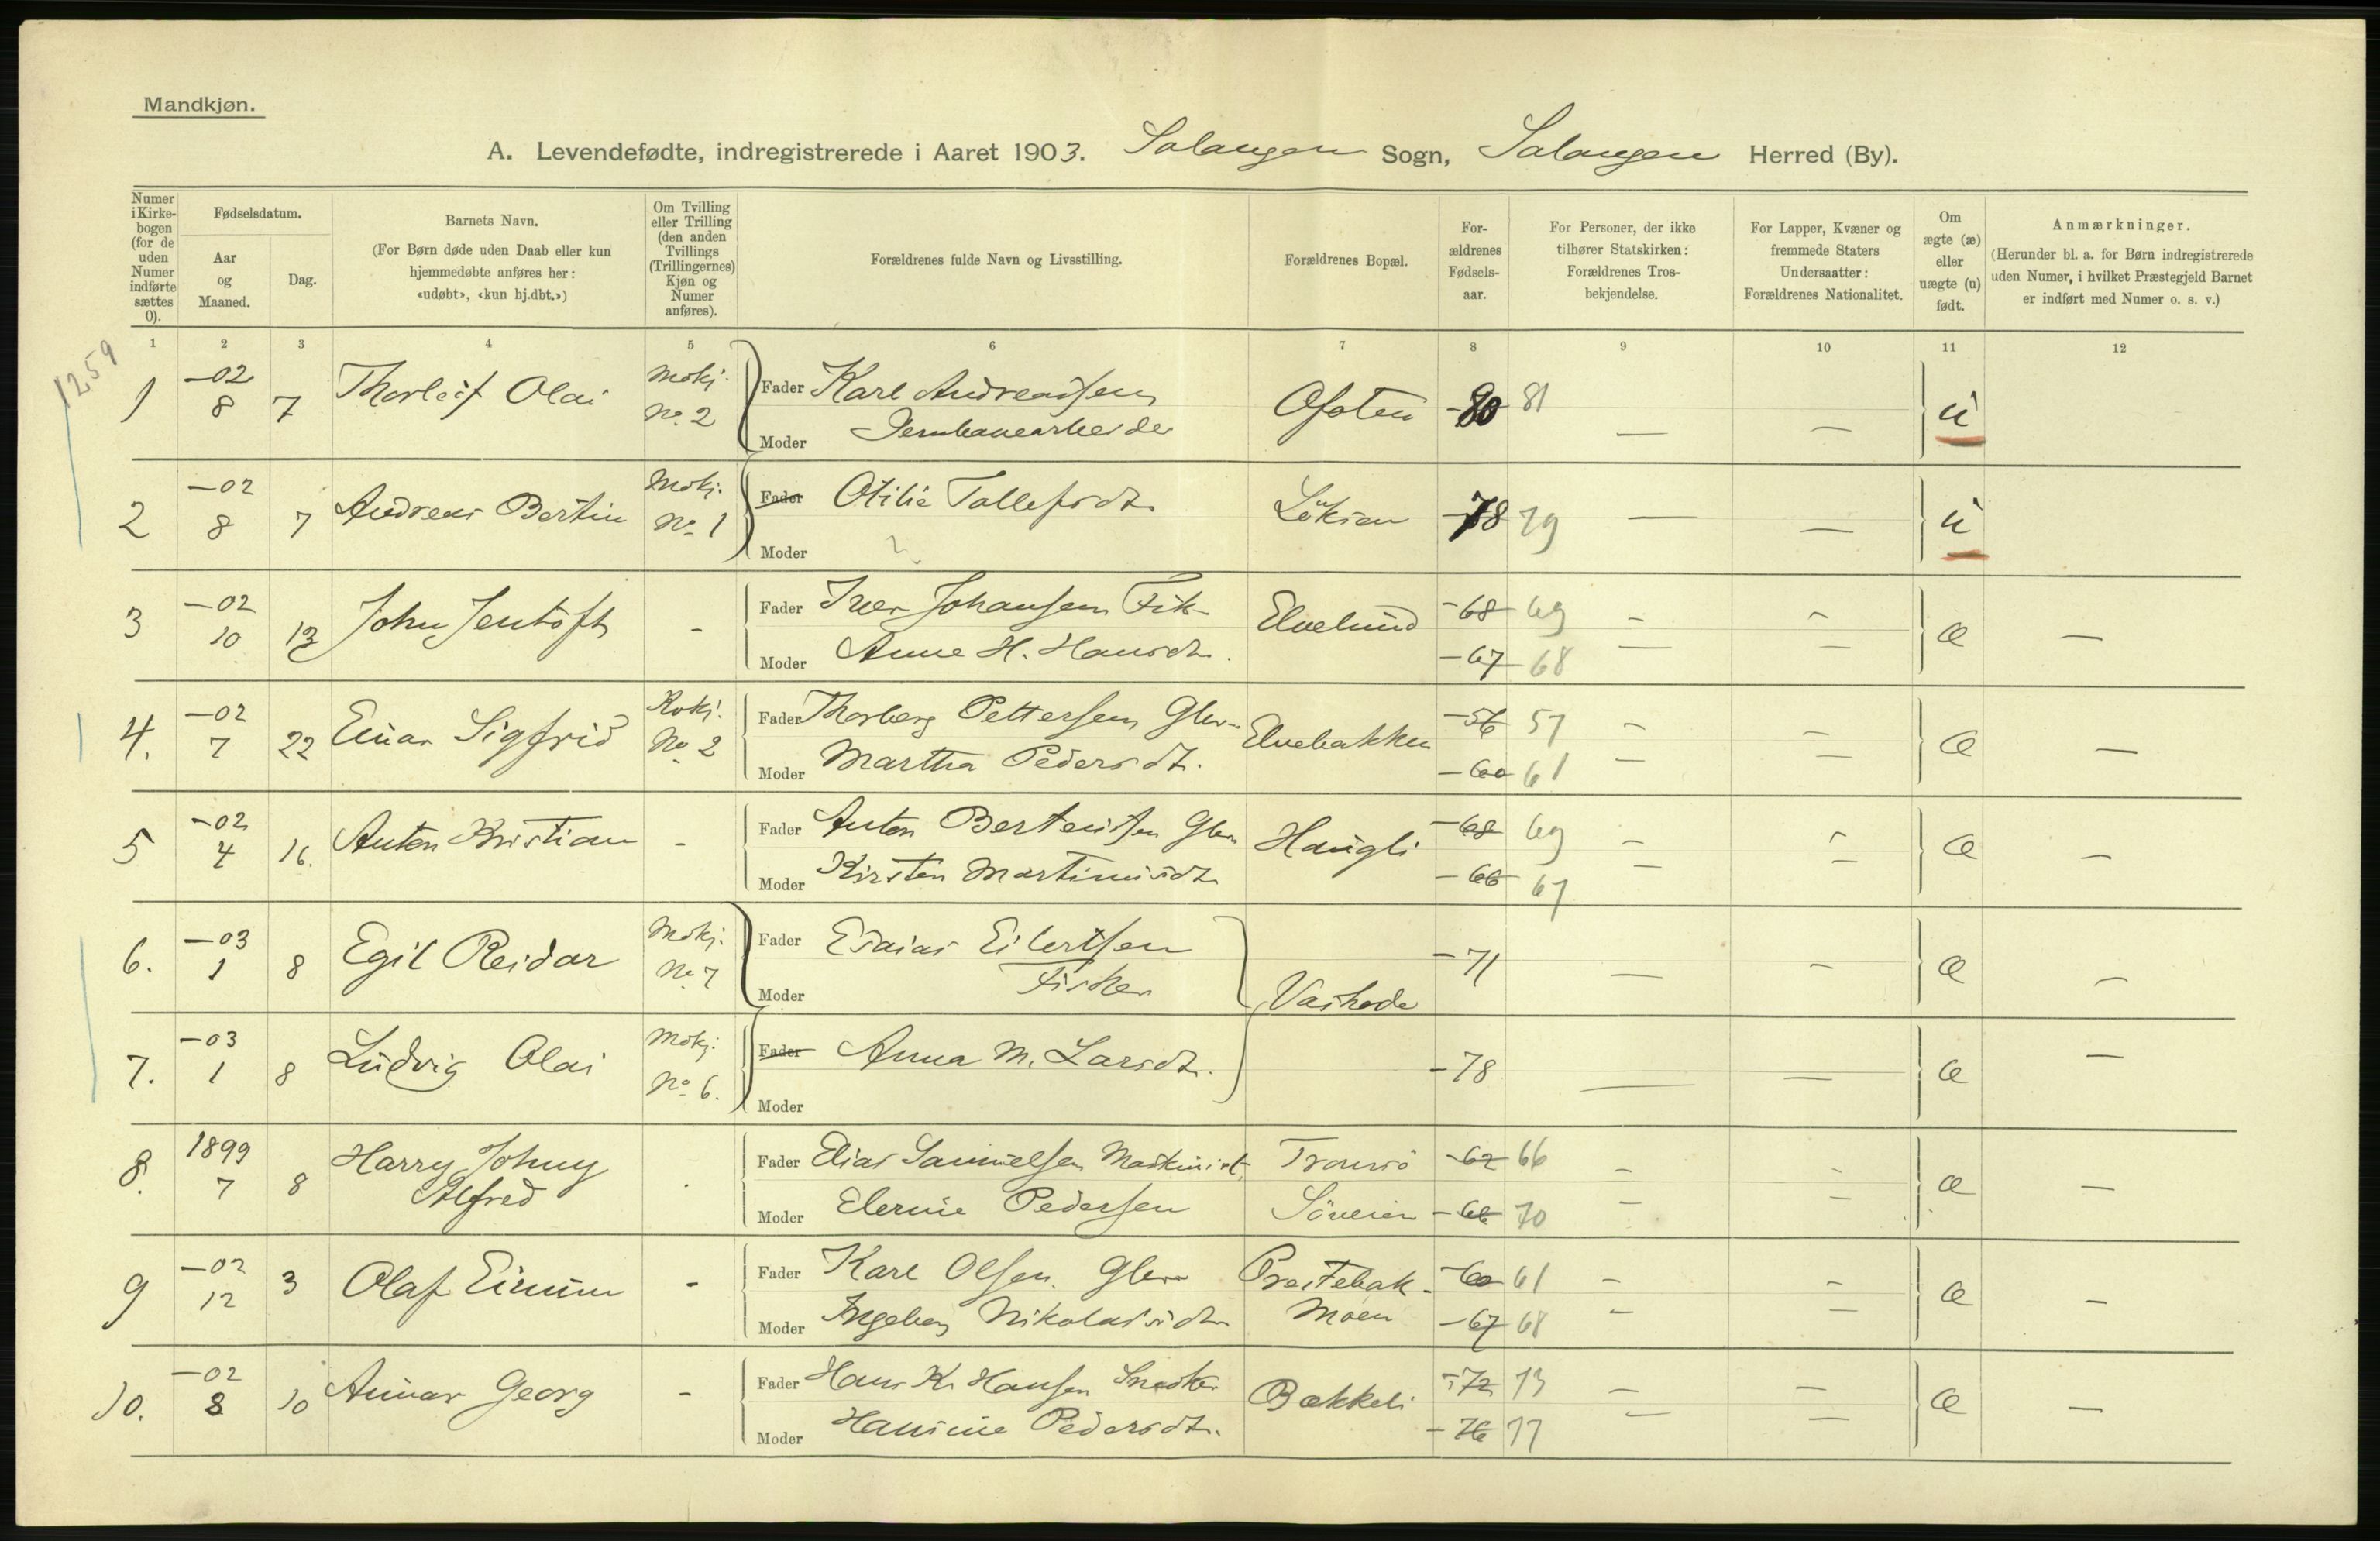 Mandkjøn.
A. Levendefødte, indregistrerede i Aaret 1903. Salangen Sogn, Salangen Herred (By).
Numer i Kirkebogen (for de uden Numer indførte sættes 0).
Fødselsdatum.
Aar og Maaned.
Dag.
Barnets Navn.
(For Børn døde uden Daab eller kun hjemmedøbte anføres her: «udøbt», «kun hj.dbt.»)
Om Tvilling eller Trilling (den anden Tvillings (Trillingernes) Kjøn og Numer anføres).
Forældrenes fulde Navn og Livsstilling.
Forældrenes Bopæl.
Forældrenes Fødselsaar.
For Personer, der ikke tilhører Statskirken: Forældrenes Trosbekjendelse.
For Lapper, Kvæner og fremmede Staters Undersaatter: Forældrenes Nationalitet.
Om ægte (æ) eller uægte (u) født.
Anmærkninger.
(Herunder bl. a. for Børn indregistrerede uden Numer, i hvilket Præstegjeld Barnet er indført med Numer o. s. v.)
1 2 3 4 5 6 7 8 9 10 11 12
1259
1 -02 8 7 Thorleif Olai Mdkj. No. 2 Fader Karl Andreassen Ofoten -80 81 — — u
Moder Jernbanearbeider
2 -02 8 7 Andreas Bertin Mdkj. No. 1 Fader Otilie Tollefsdt. -78 79 — — u
Moder
3 -02 10 13 John Jentoft - Fader Iver Johansen Fisk. Elvelund -68 69 - - æ —
Moder Anne H. Hansdt. -67 68 — —
4. -02 7 22 Einar Sigfrid No. 2 Fader Thorberg Pettersen Gbr. Elvebakken -56 57 - - æ —
Moder Martha Pedersdt. -60 61 — —
5 -02 4 16. Anton Kristian - Fader Anton Berteussen Gbr. Haugli -68 69 - - æ —
Moder Kirsten Martinusdt. -66 67 — —
6. -03 1 8 Egil Reidar Mdkj. No. 7 Fader Esaias Eilertsen -71 — - æ —
Moder Fisker
7. -03 1 8 Ludvig Olai Mdkj. No. 6. Fader Anna M. Larsdt. -78 — — æ —
Moder
8. 1899 7 8 Harry Johny Alfred . Fader Elias Samuelsen Maskinist Tromsö -62 66 - - æ —
Moder Pedersen -66 70 - -
9 -02 12 3 Olaf - Fader Karl Olsen Gbr. Præstebak- -60 61 - - æ —
Moder Ingeborg Nikolaisdt. moen -67 68 - -
10. -02 8 10 Georg - Fader Hans Kr. Hansen Snedker Bækkeli -72 73 - - æ —
Moder Hansine Pedersdt. -76 77 — —